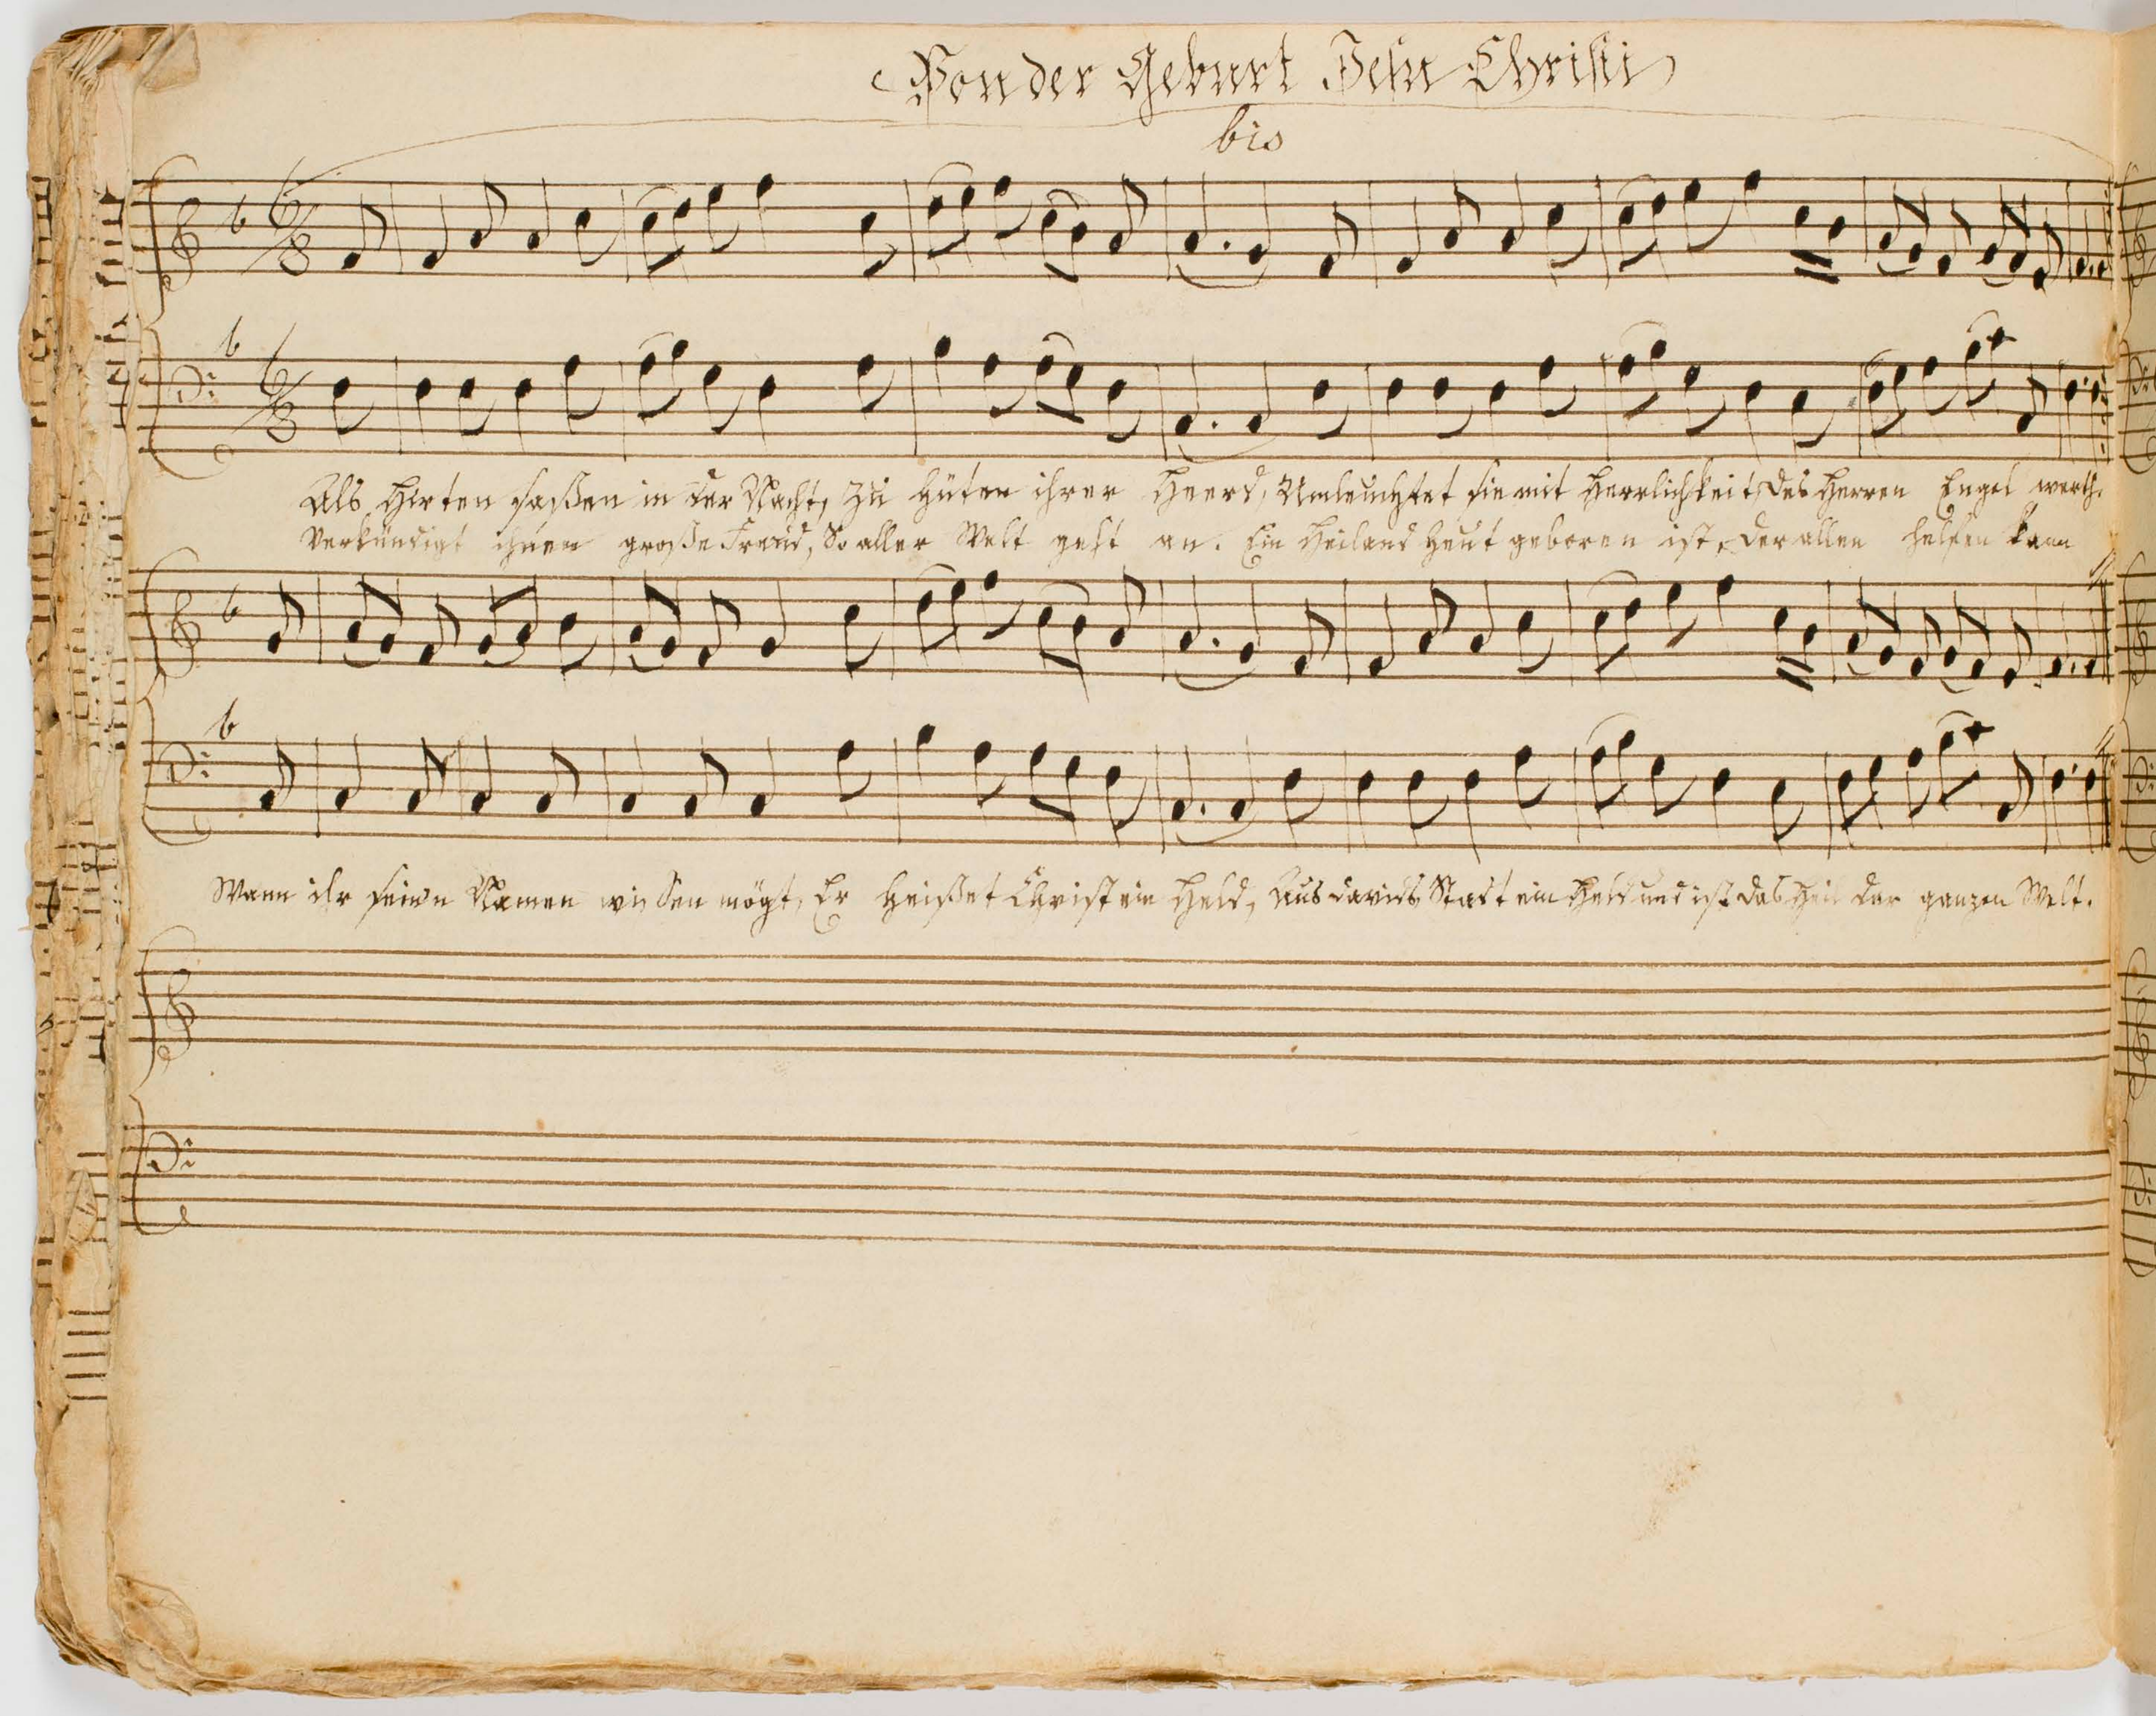 Von der Geburt Jesu Christi
bis
Als Hirten saßen in der Nacht, zu hüten ihrer Heerd, Umleuchtet sie mit Herrlichkeit, des Herren Engel werth.
Verkündigt ihnen große Freud, So aller Welt geht an. Ein Heiland heut geboren ist, der allen helfen kann
Wann ihr seinen Namen wissen mögt, Er heißet Christ ein Held, Aus Davids Stadt ein Held und ist das Heil der ganzen Welt.